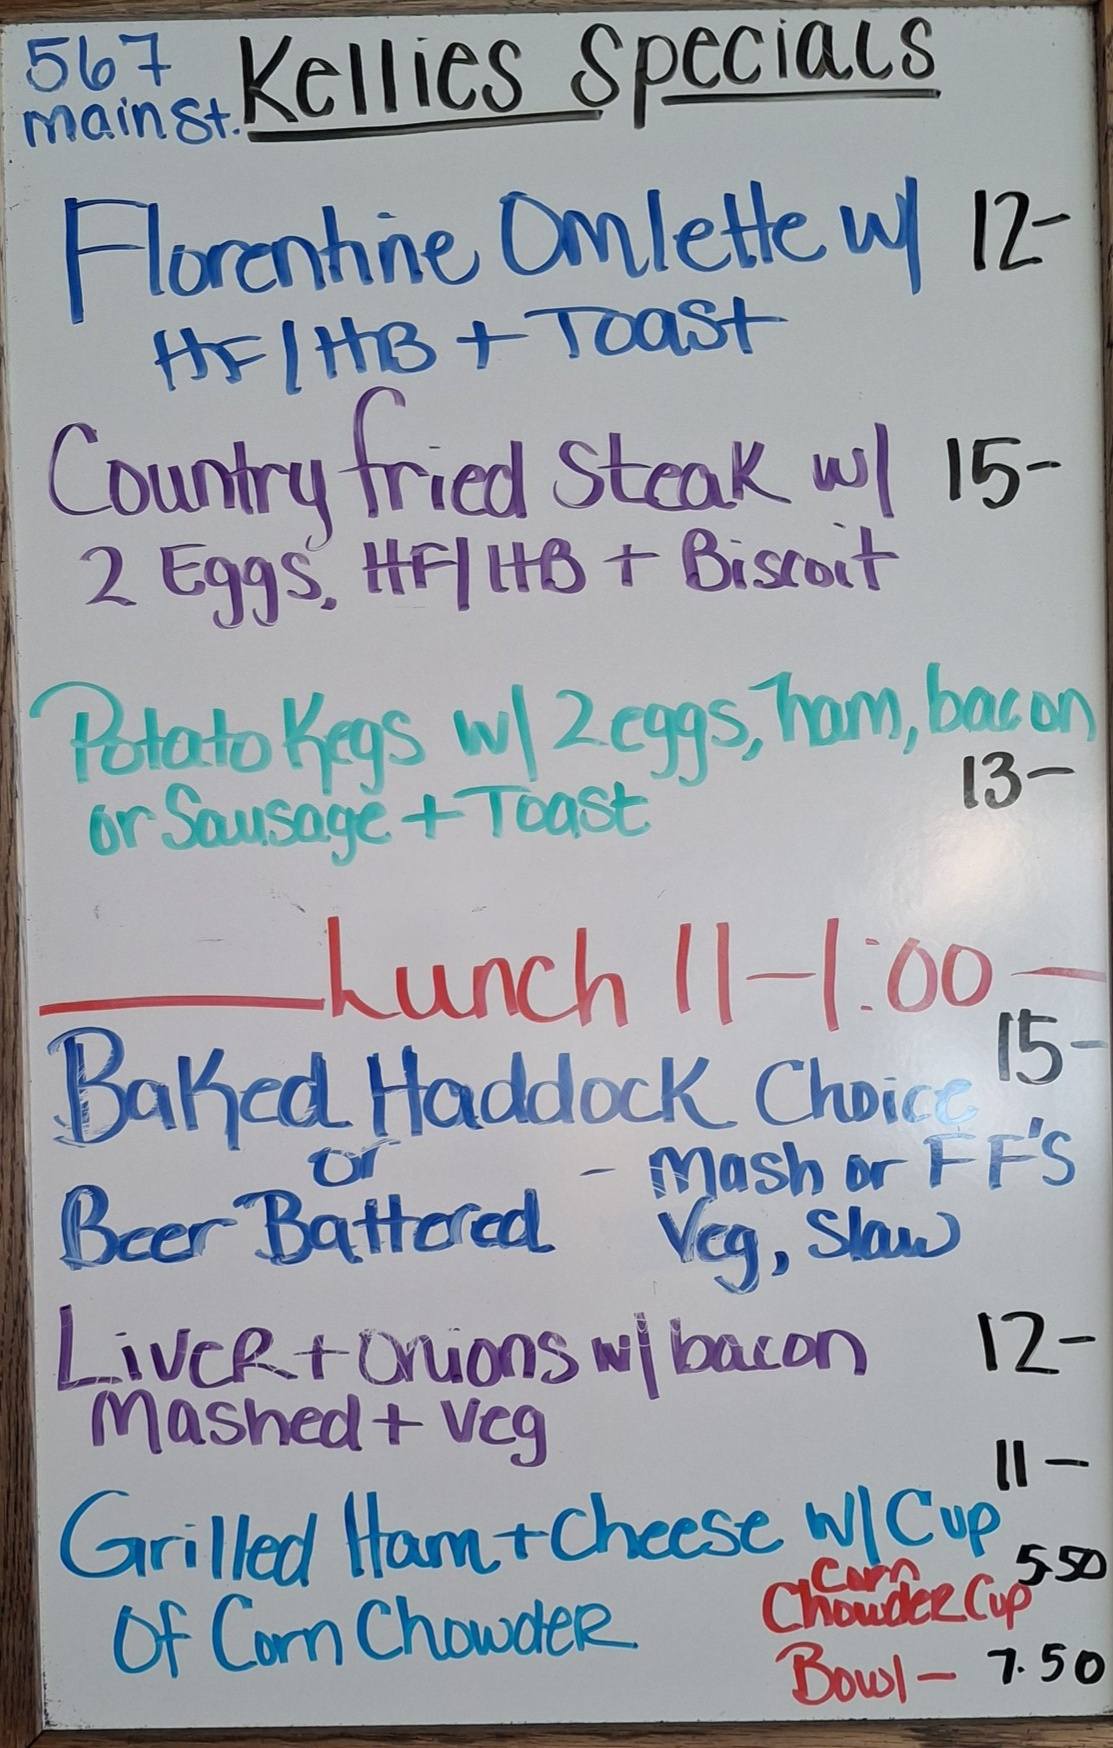 567
main st.
Kellies Specials
Florentine Omlette w/ 12-
HF/HB + Toast
Country fried Steak w/ 15-
2 Eggs, HF/HB + Biscuit
Potato Kegs w/ 2 eggs, ham, bacon
13-
or Sausage + Toast
Lunch 11-1:00
15-
Baked Haddock Choice
or - Mash or FF'S
Beer Battered Veg, Slaw
Liver + Onions w/ bacon 12-
Mashed + Veg
11-
Grilled Ham + Cheese w/ Cup
Of Corn Chowder
Corn 5.50
Chowder Cup
Bowl - 7.50